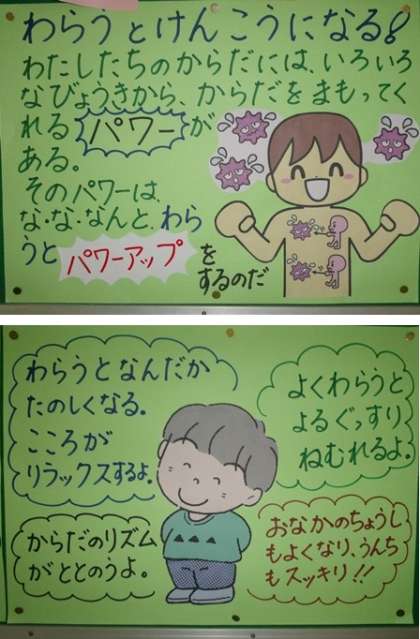 わらうとけんこうになる!
わたしたちのからだには、いろいろ
なびょうきから、からだをまもってく
れるパワーが
ある。
そのパワーは、
な・な・なんと、わら
うとパワーアップを
するのだ
わらうとなんだか
たのしくなる。
こころが
リラックスするよ。
よくわらうと
よるぐっすり
ねむれるよ。
からだのリズム
がととのうよ。
おなかのちょうし
もよくなり、うんち
もスッキリ!!